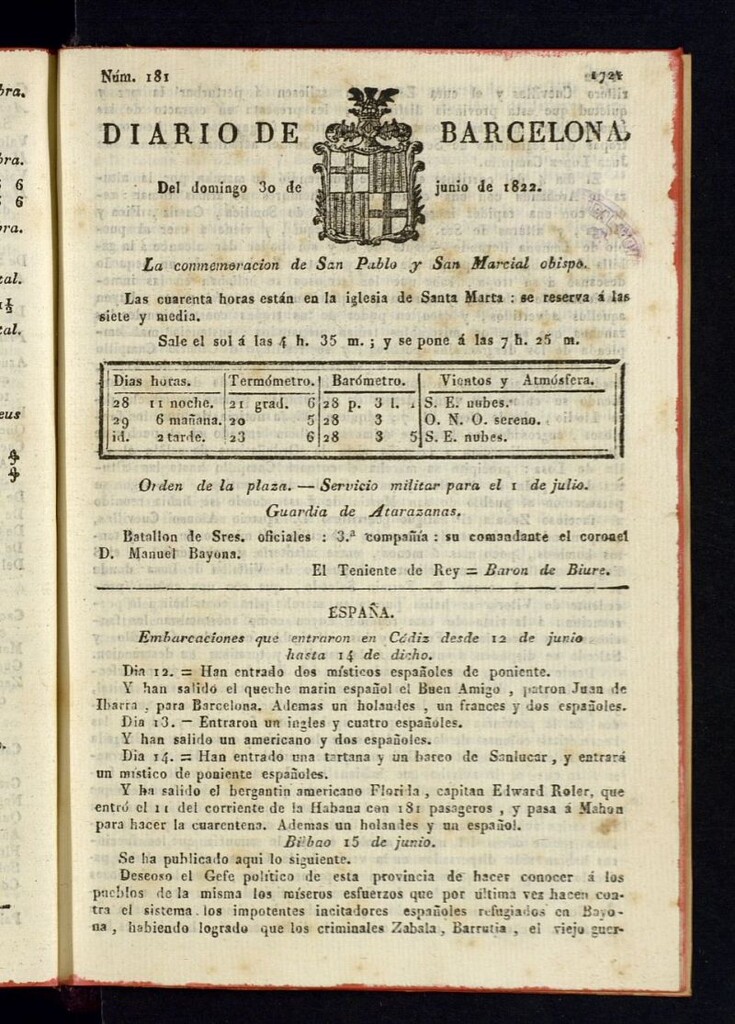 bra.
bra.
6
6
ra.
tal.
1½
tal.
eus
Núm. 181
DIARIO DE BARCELONA,
Del domingo 30 de junio de 1822.
La conmemoracion de San Pablo y San Marcial obispo.
Las cuarenta horas están en la iglesia de Santa Marta : se reserva á las
siete y media.
Sale el sol á las 4 h. 35 m. ; y se pone á las 7 h. 25 m.
Dias horas. Termómetro. Barómetro. Vientos y Atmósfera.
28 11 noche. 21 grad. 6 28 p. 3 l. S. E. nubes.
29 6 mañana. 20 5 28 3 O. N. O. sereno.
id. 2 tarde. 23 6 28 3 5 S. E. nubes.
Orden de la plaza. — Servicio militar para el 1 de julio.
Guardia de Atarazanas.
Batallon de Sres. oficiales : 3.ª compañía : su comandante el coronel
D. Manuel Bayona.
El Teniente de Rey = Baron de Biure.
ESPAÑA.
Embarcaciones que entraron en Cádiz desde 12 de junio
hasta 14 de dicho.
Dia 12. = Han entrado dos místicos españoles de poniente.
Y han salido el queche marin español el Buen Amigo , patron Juan de
Ibarra , para Barcelona. Ademas un holandes , un frances y dos españoles.
Dia 13. — Entraron un ingles y cuatro españoles.
Y han salido un americano y dos españoles.
Dia 14. = Han entrado una tartana y un barco de Sanlucar , y entrará
un místico de poniente españoles.
Y ha salido el bergantin americano Florida , capitan Edward Roler, que
entró el 11 del corriente de la Habana con 181 pasageros , y pasa á Mahon
para hacer la cuarentena. Ademas un holandes y un español.
Bilbao 15 de junio.
Se ha publicado aqui lo siguiente.
Deseoso el Gefe político de esta provincia de hacer conocer á los
pueblos de la misma los míseros esfuerzos que por última vez hacen con-
tra el sistema los impotentes incitadores españoles refugiados en Bayo-
na , habiendo logrado que los criminales Zabala , Barrutia , el viejo guer-